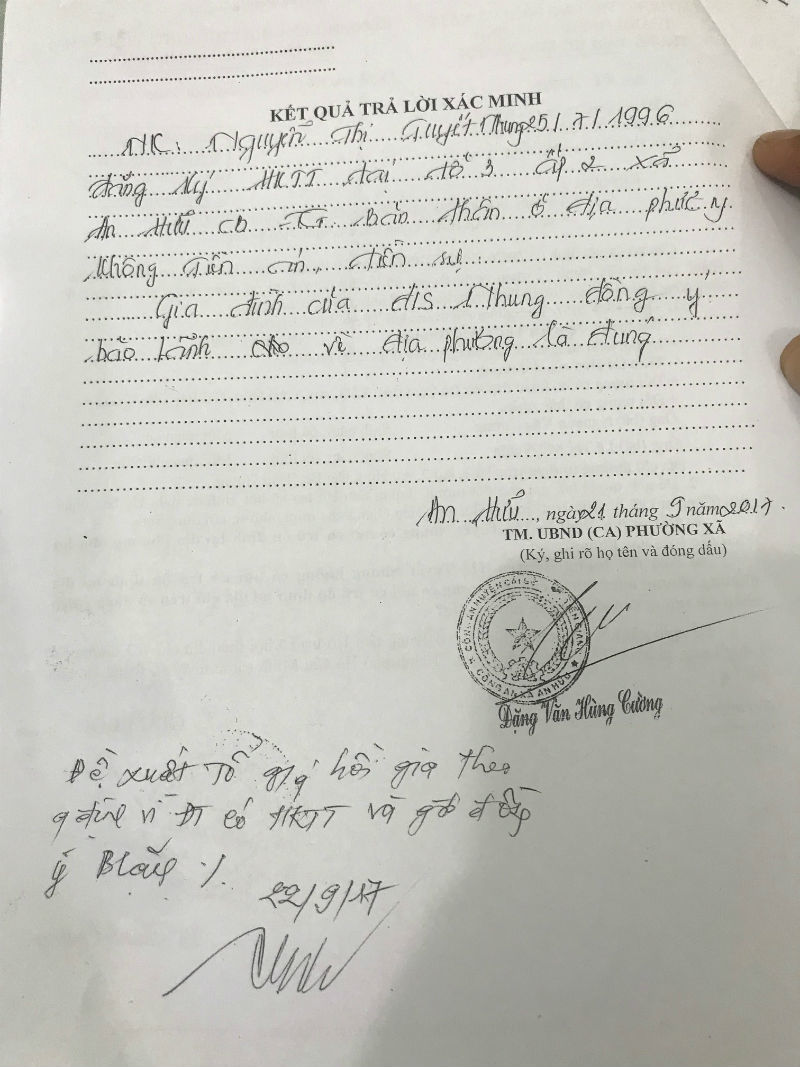 KẾT QUẢ TRẢ LỜI XÁC MINH
NK: Nguyễn Thị Tuyết Nhung 25/7/1996
đăng ký HKTT tại tổ 3 ấp 2 xã
An Hữu CB - TG bản thân ở địa phương
không tiền án, tiền sự.
Gia đình của đ/s Nhung đồng ý
bảo lãnh cho về địa phương là đúng
An Hữu, ngày 21 tháng 9 năm 2017.
TM. UBND (CA) PHƯỜNG XÃ
(Ký, ghi rõ họ tên và đóng dấu)
CÔNG AN HUYỆN CÁI BÈ TIỀN GIANG
CÔNG AN XÃ AN HỮU
Đặng Văn Hùng Cường
Đề xuất Tổ hồi gia theo
q định vì ĐT có HKTT và gđ đồng
ý Blãnh ./.
22/9/17